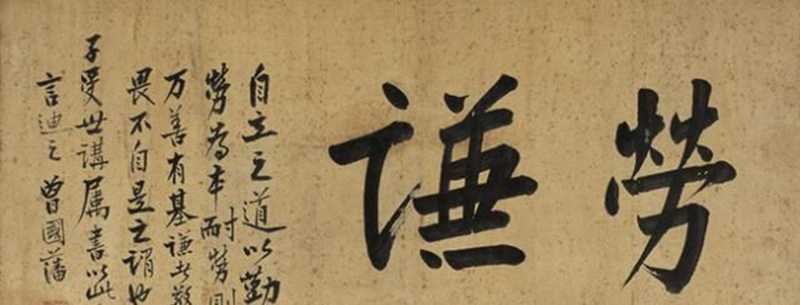 勞謙
自立之道以勤
勞為本耐勞則
万善有基謙者敬
畏不自是之謂也
子受世講属書以此
言迪之曾國藩